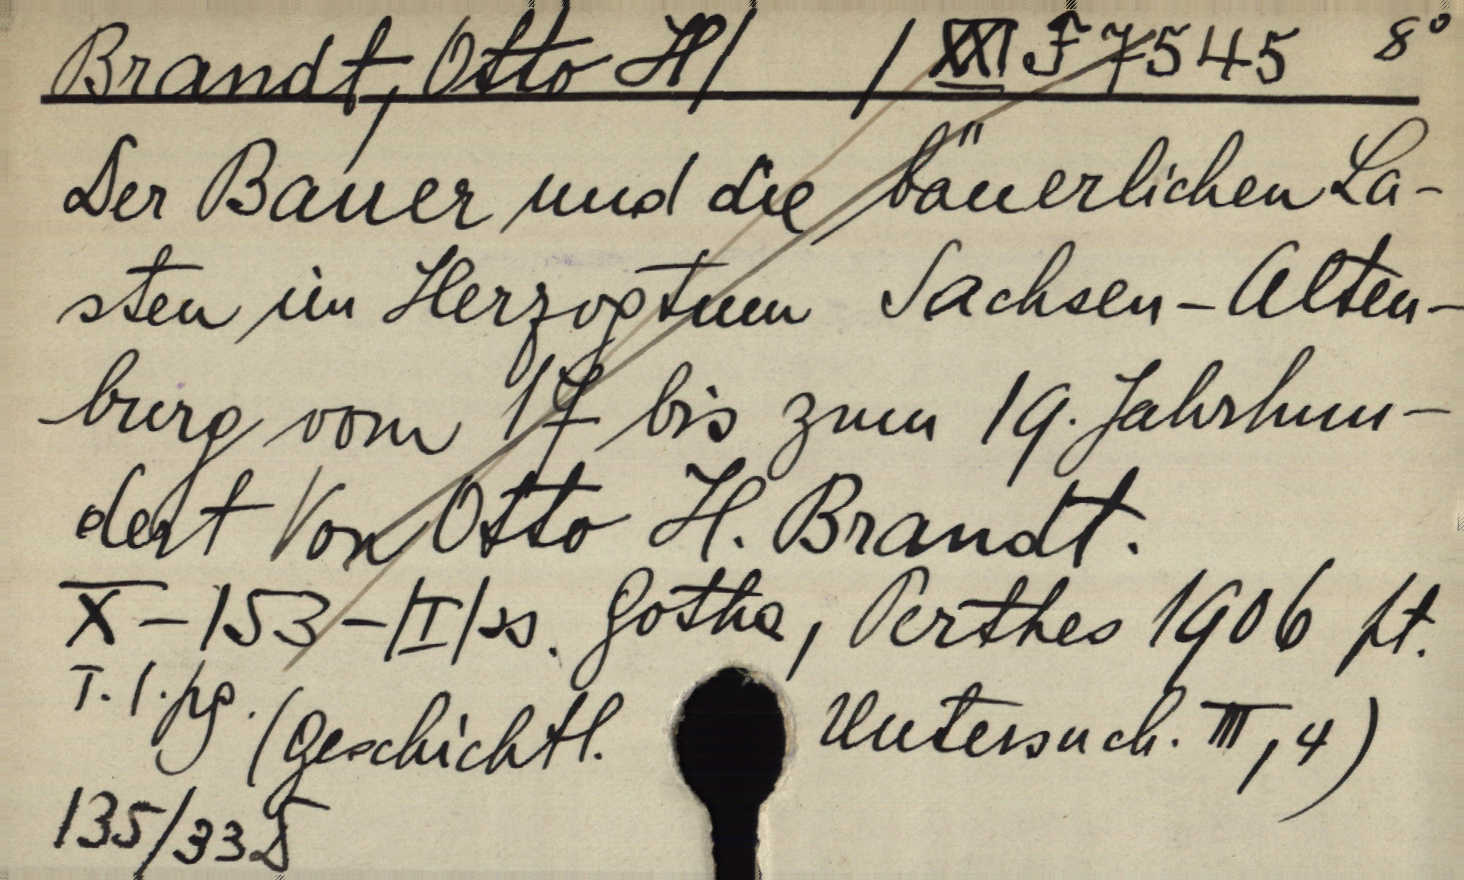 Brandt, Otto H/ / XXI F 7545 8°
Der Bauer und die bäuerlichen La-
sten im Herzogtum Sachsen-Alten-
burg vom 17 bis zum 19. Jahrhun-
dert Von Otto H. Brandt.
X-153-/I/ss. Gotha, Perthes 1906 pt.
T. 1. pg. (Geschichtl. Untersuch. III, 4)
135/33 D